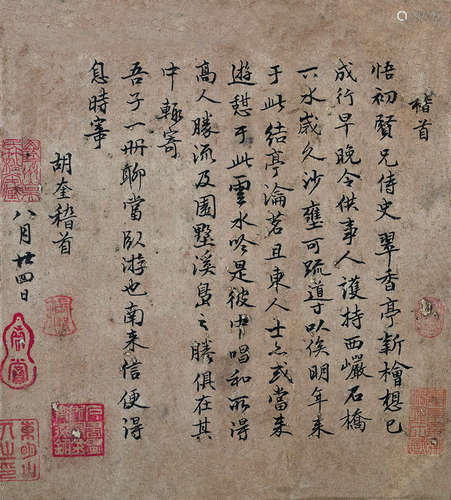 稽首
悟初賢兄侍史翠香亭新檜想已
成行早晚令供事人護持西巖石橋
下水歲久沙壅可疏導以俟明年來
于此結亭瀹茗且東人士亦或當來
遊憇于此雲水吟是彼中唱和所得
高人勝流及園墅溪島之勝俱在其
中輒寄
吾子一冊聊當臥游也南來信便得
息時寄
胡奎稽首
八月廿四日